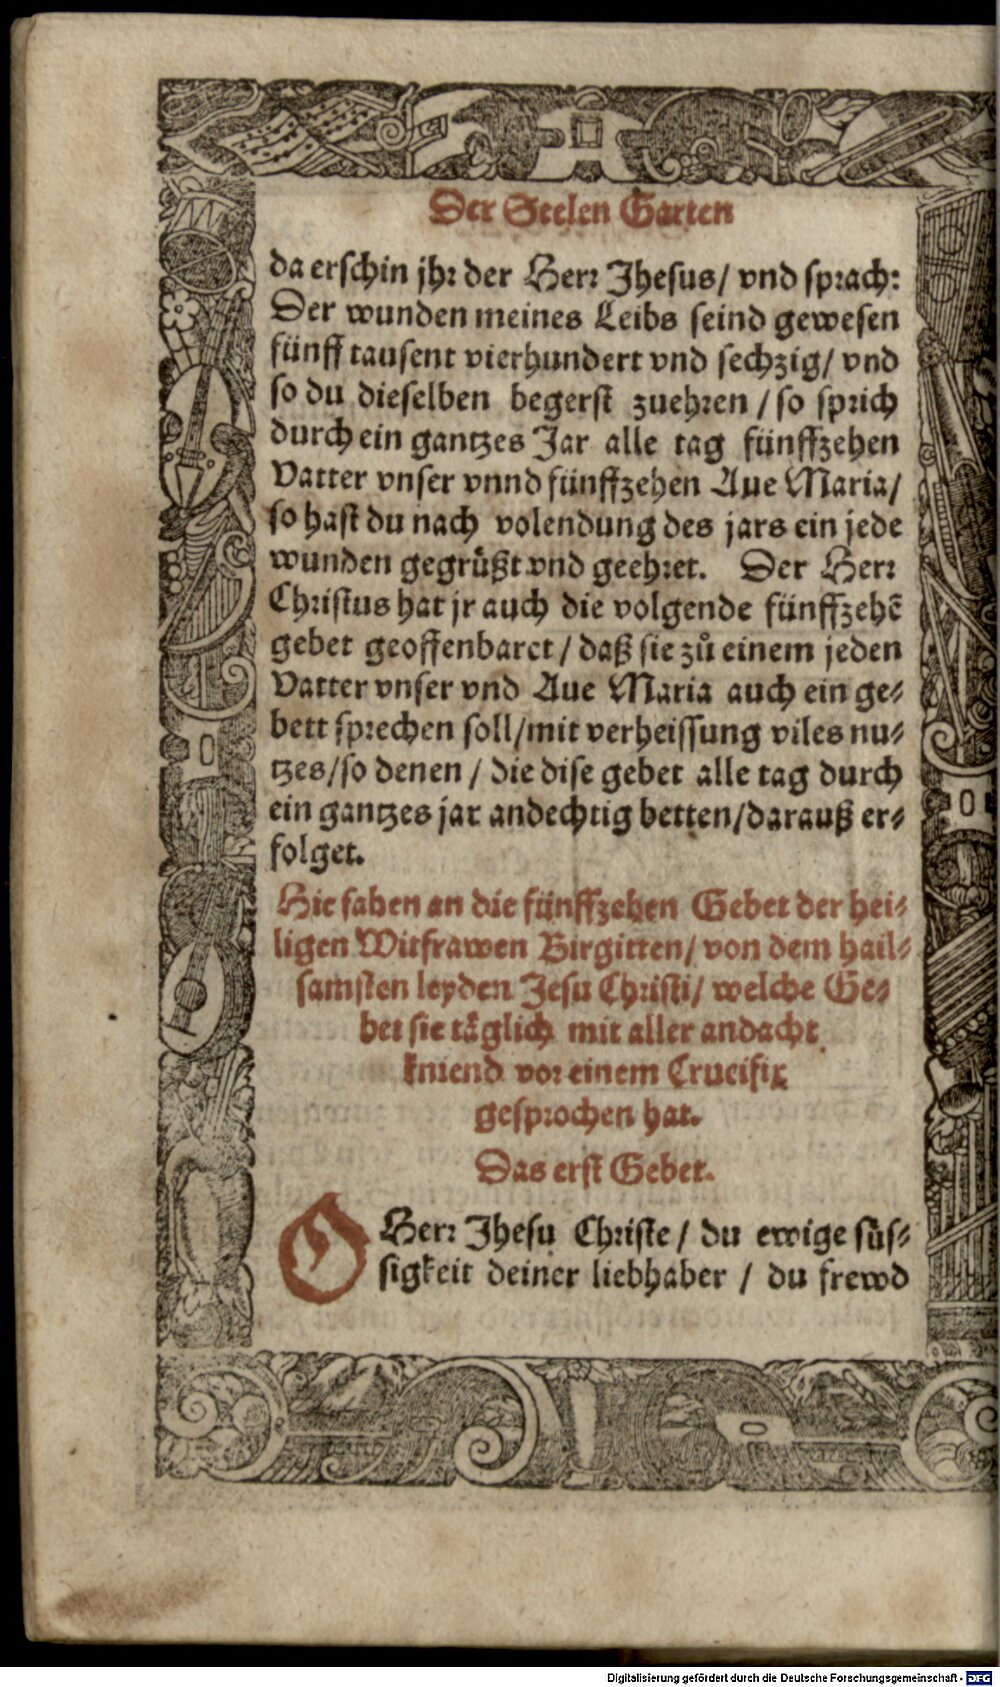 Der Seelen Garten
da erschin jhr der Herr Jhesus/ vnd sprach:
Der wunden meines Leibs seind gewesen
fünff tausent vierhundert vnd sechzig/ vnd
so du dieselben begerst zuehren / so sprich
durch ein gantzes Jar alle tag fünffzehen
Vatter vnser vnnd fünffzehen Aue Maria/
so hast du nach volendung des jars ein jede
wunden gegrüßt vnd geehret. Der Herr
Christus hat jr auch die volgende fünffzehẽ
gebet geoffenbaret / daß sie zů einem jeden
Vatter vnser vnd Aue Maria auch ein ge⸗
bett sprechen soll/mit verheissung viles nu⸗
tzes/so denen / die dise gebet alle tag durch
ein gantzes jar andechtig betten/darauß er⸗
folget.
Hie fahen an die fünffzehen Gebet der hei⸗
ligen Witfrawen Birgitten/ von dem hail⸗
samsten leyden Jesu Christi/ welche Ge⸗
bet sie täglich mit aller andacht
kniend vor einem Crucifix
gesprochen hat.
Das erst Gebet.
O Herr Jhesu Christe / du ewige süs⸗
sigkeit deiner liebhaber / du frewd
Digitalisierung gefördert durch die Deutsche Forschungsgemeinschaft - DFG